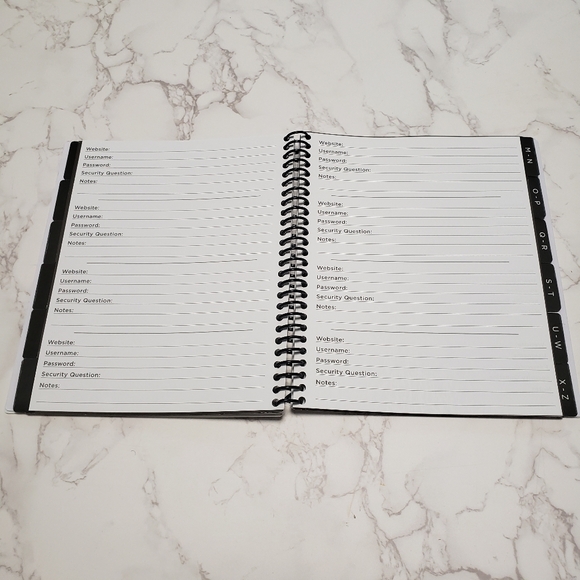 Website:
Username:
Password:
Security Question:
Notes:
Website:
Username:
Password:
Security Question:
Notes:
Website:
Username:
Password:
Security Question:
Notes:
Website:
Username:
Password:
Security Question:
Notes:
Website:
Username:
Password:
Security Question:
Notes:
Website:
Username:
Password:
Security Question:
Notes:
Website:
Username:
Password:
Security Question:
Notes:
Website:
Username:
Password:
Security Question:
Notes:
M-N
O-P
Q-R
S-T
U-W
X-Z